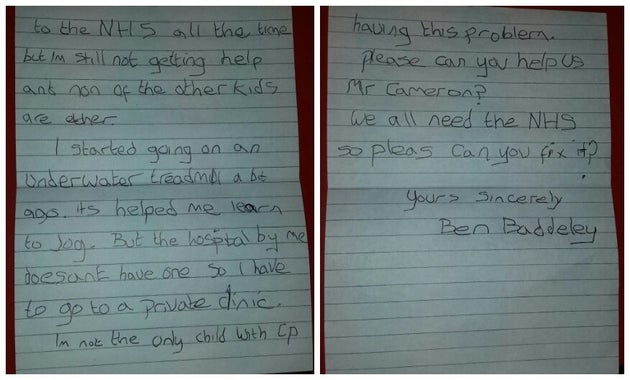 to the NHS all the time
but Im still not getting help
ant non of the other kids
are ether
I started going on an
underwater treadmill a bit
ago. its helped me learn
to Jog. But the hospital by me
doesant have one so I have
to go to a private clinic.
Im not the only child with CP
having this problem.
please can you help us
Mr Cameron?
We all need the NHS
so pleas can you fix it?
Yours Sincerely
Ben Baddeley